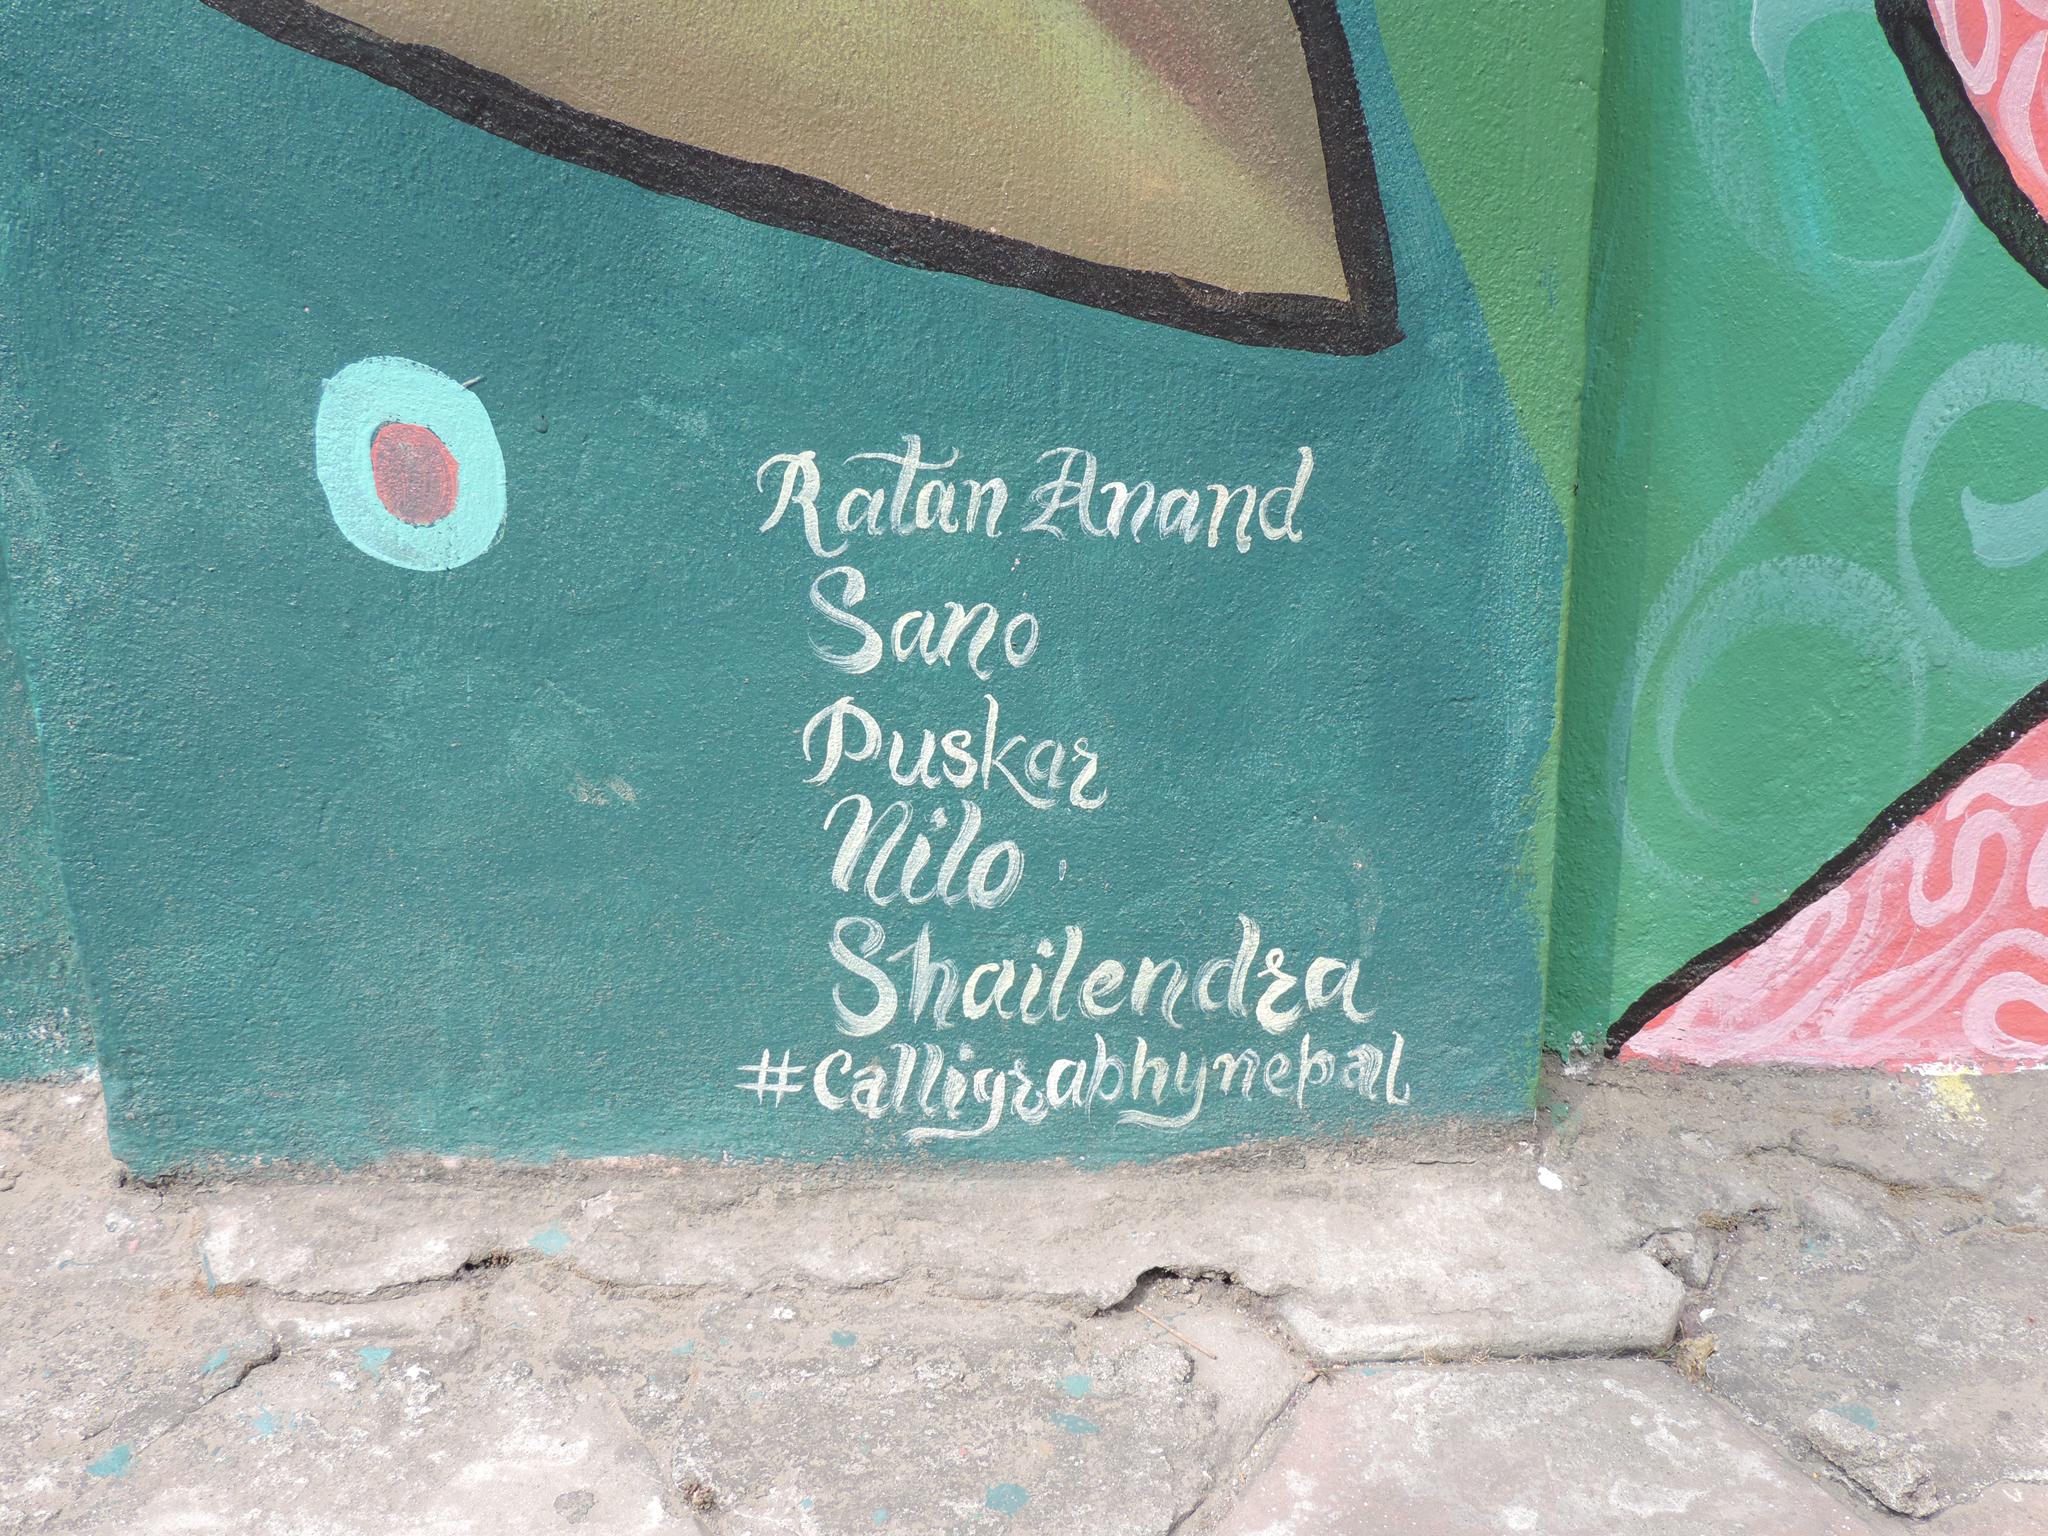 Ratan Anand
Sano
Puskar
Nilo
Shailendra
#calligraphynepal